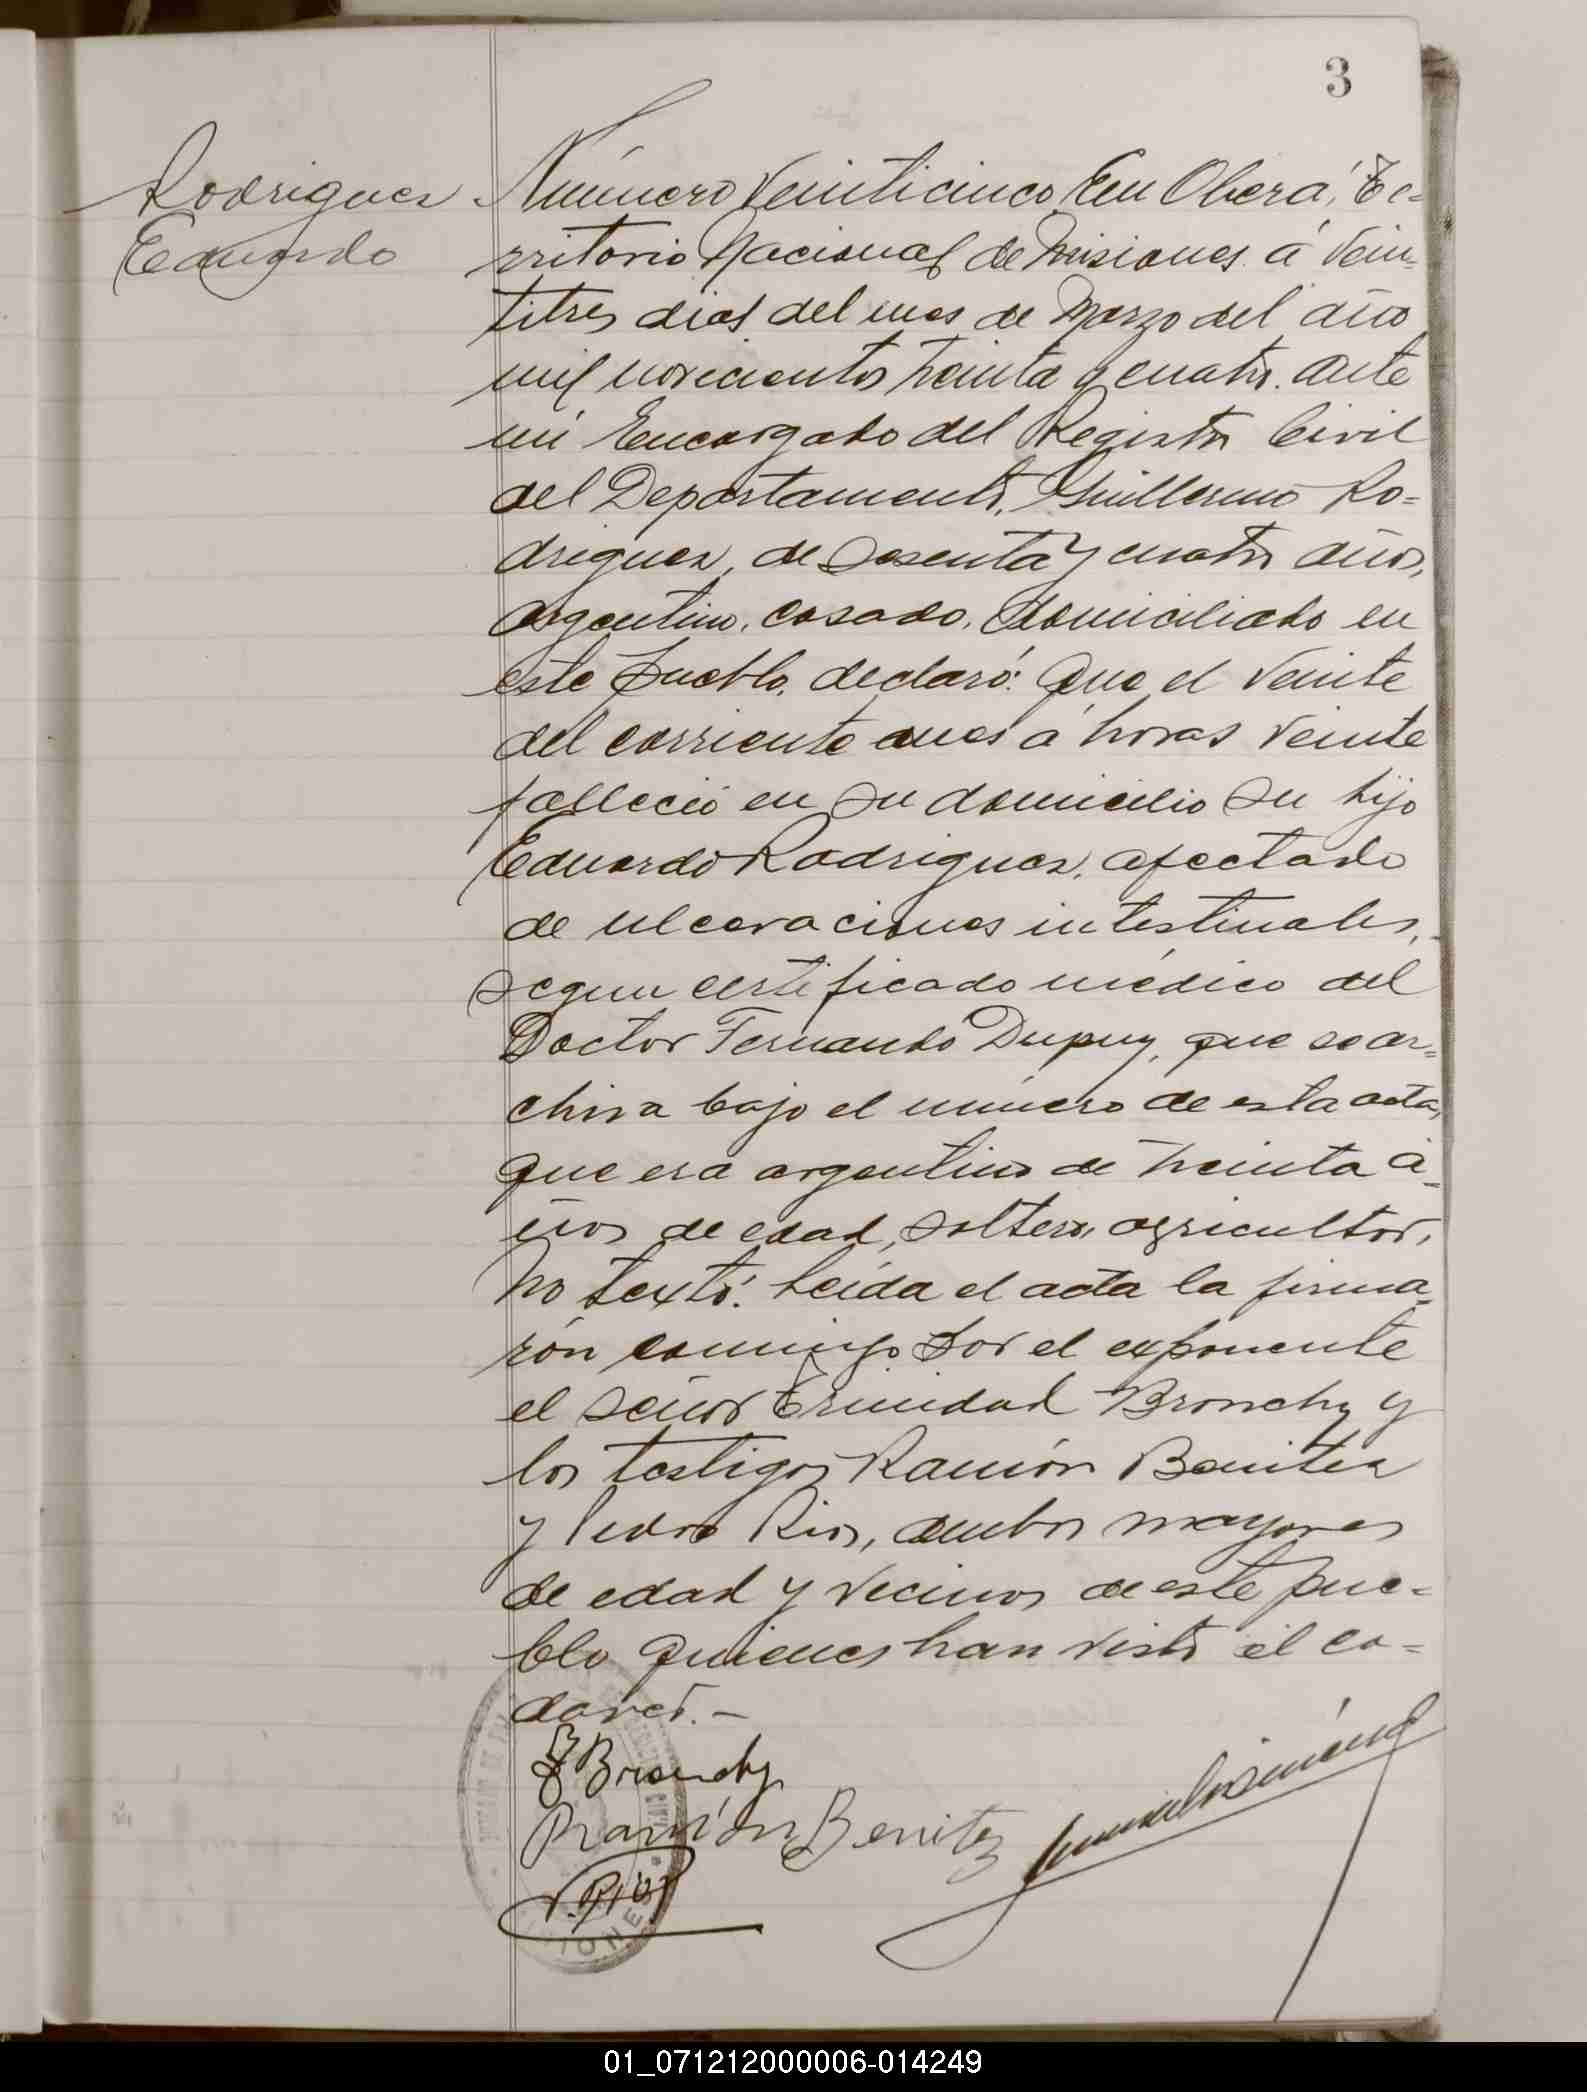 3
Rodriguez
Eduardo
Número Veinticinco. En Oberá, Te-
rritorio Nacional de Misiones á Vein-
titres dias del mes de Marzo del año
mil novecientos treinta y cuatro. ante
mi Encargado del Registro Civil
del Departamento, Guillermo Ro-
driguez, de sesenta y cuatro años,
argentino, casado, domiciliado en
este pueblo, declaró: Que el Veinte
del corriente mes á horas Veinte
falleció en su domicilio su hijo
Eduardo Rodriguez, afectado
de ulceraciones intestinales,
segun certificado médico del
Doctor Fernando Dupuy, que se ar-
chiva bajo el número de esta acta,
que era argentino de treinta a-
ños de edad, soltero, agricultor,
No textó. Leida el acta la firma-
rón conmigo por el exponente
el señor Trinidad Bronchy y
los testigos Ramón Benitez
y Pedro Rios, ambos mayores
de edad y Vecinos de este pue-
blo quienes han visto el ca-
daver.-
T Bronchy
Ramón Benitez
P. Rios
CIVIL
MISIONES
01_071212000006-014249